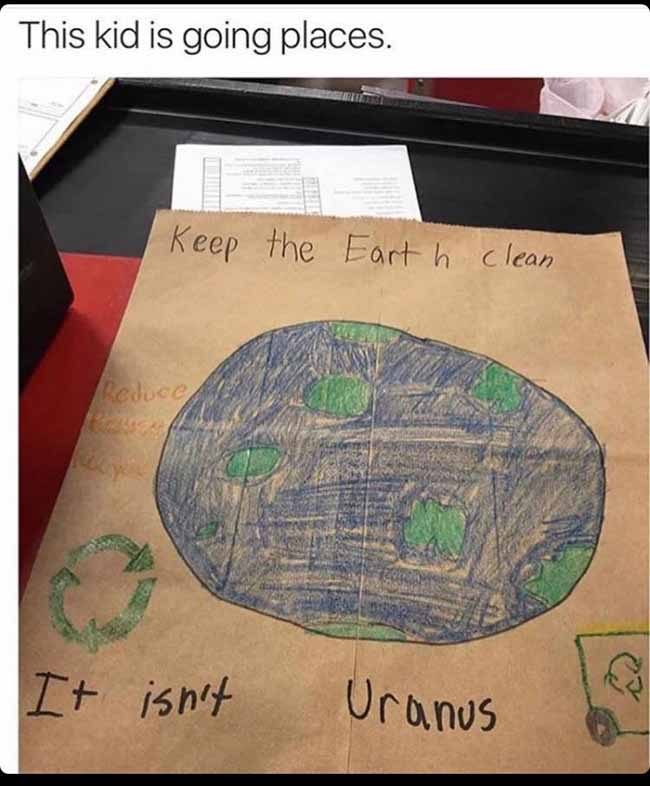 This kid is going places.
Keep the Earth clean
Reduce
Reuse
Recycle
It isn't Uranus